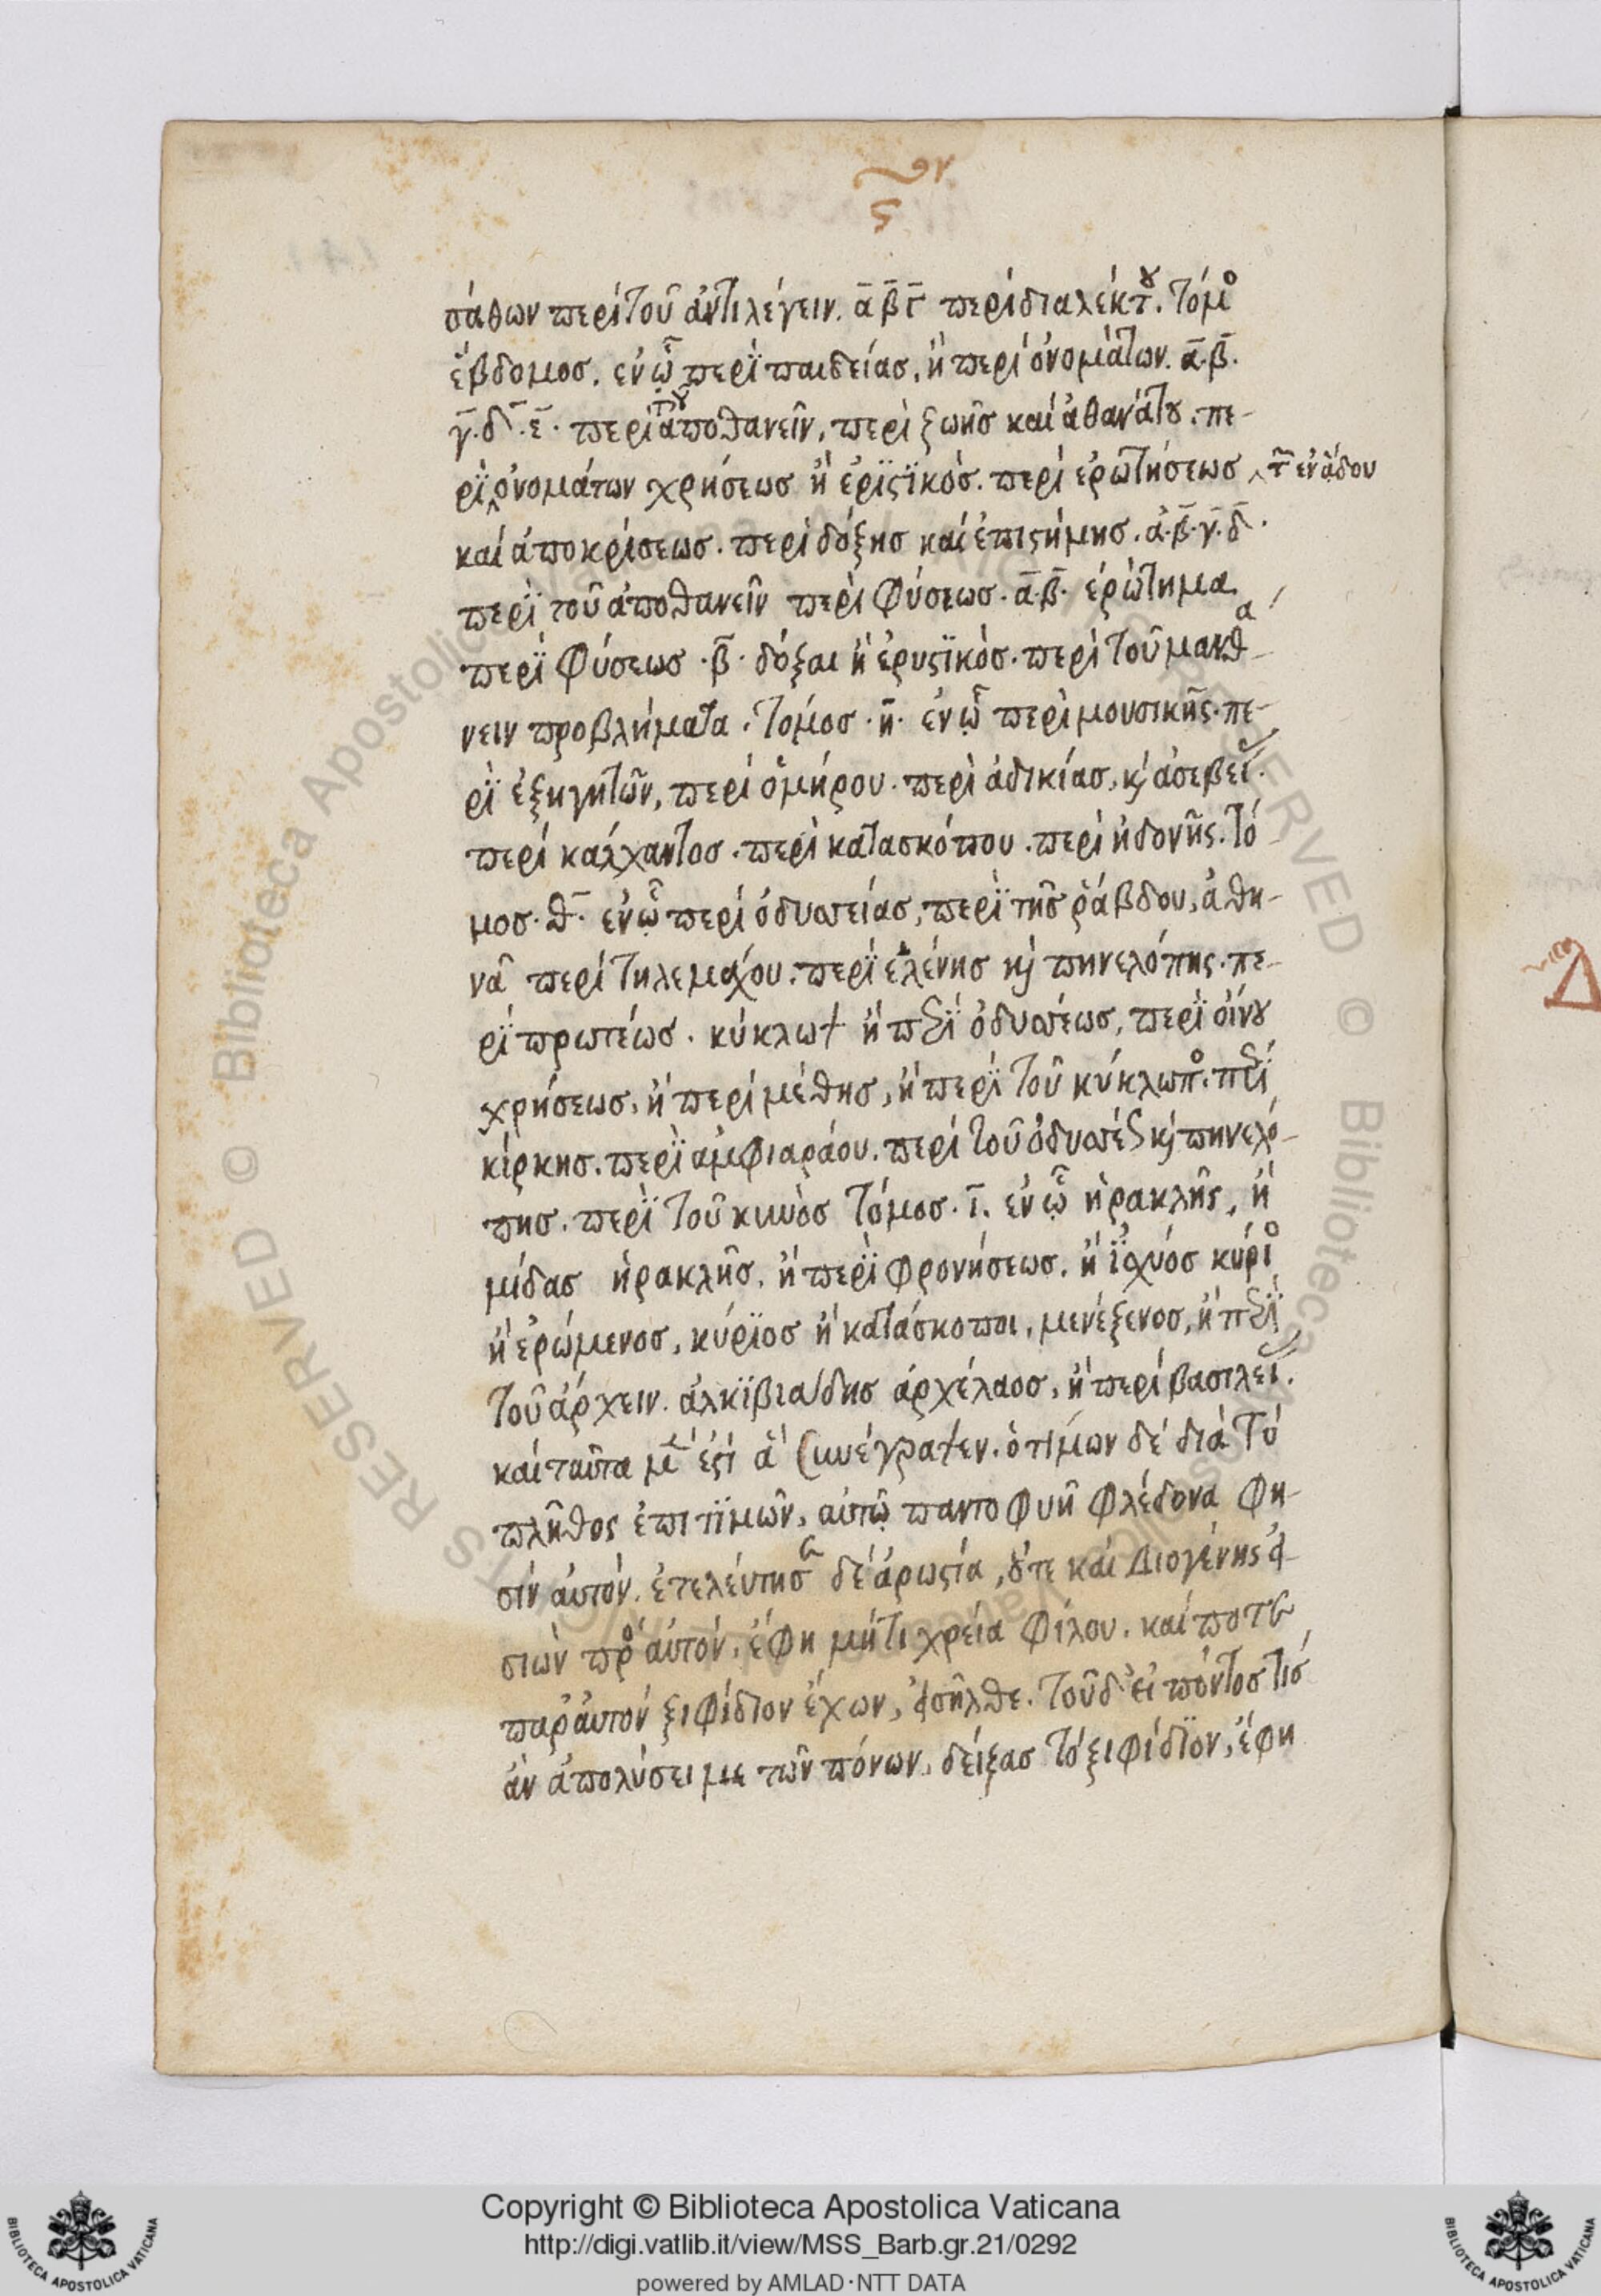 σάθων περὶ τοῦ ἀντιλέγειν. α̅ β̅ γ̅ περὶ διαλέκτȣ. τόμο
ἕβδομος. ἐν ᾧ περὶ παιδείας, ἢ περὶ ὀνομάτων. α̅. β̅.
γ̅. δ̅. ε̅. περὶ τȣ ἀποθανεῖν, περὶ ζωῆς καὶ ἀθανάτȣ. πε-
ρὶ ὀνομάτων χρήσεως ἢ ἐριϛικὸς. περὶ ἐρωτήσεως τ̅ ἐν ἅδου
καὶ ἀποκρίσεως. περὶ δόξης καὶ ἐπιϛήμης. α̅. β̅. γ̅. δ̅.
περὶ τοῦ ἀποθανεῖν περὶ φύσεως. α̅. β̅. ἐρώτημα
περὶ φύσεως. β̅. δόξαι ἢ ἐρυϛικὸς. περὶ τοῦ μανθα
νειν προβλήματα. τόμος. η̅. ἐν ᾧ περὶ μουσικῆς. πε-
ρὶ ἐξηγητῶν, περὶ ὁμήρου. περὶ ἀδικίας, κ̀ ἀσεβεί.
περὶ κάλχαντος. περὶ κατασκόπου. περὶ ἡδονῆς. τό
μος. θ̅. ἐν ᾧ περὶ ὀδυσσείας, περὶ τῆς ῥάβδου, ἀθη-
νᾶ περὶ τηλεμάχου. περὶ ἑλένης κ̀ πηνελόπης. πε-
ρὶ πρωτέως. κύκλωψ ἢ πξὶ ὀδυσσέως, περὶ οἴνȣ
χρήσεως, ἢ περὶ μέθης, ἢ περὶ τοῦ κύκλωπο. πξὶ
κίρκης. περὶ ἀμφιαράου. περὶ τοῦ ὀδυσσέως κ̀ πηνελό-
πης. περὶ τοῦ κυνὸς τόμος. ι̅. ἐν ᾧ ἡρακλῆς, ἢ
μίδας ἡρακλῆς, ἢ περὶ φρονήσεως. ἢ ἰχύος κύριο
ἢ ἐρώμενος, κύριος ἢ κατάσκοποι, μενέξενος, ἢ πξὶ
τοῦ ἄρχειν. ἀλκιβιάδης ἀρχέλαος, ἢ περὶ βασιλεί.
καὶ ταῦτα μὲ ἐϛὶ ἃ συνέγραψεν. ὁ τίμων δὲ διὰ τὸ
πλῆθος ἐπιτιμῶν, αὐτῷ παντοφυῆ φλέδονα φη-
σὶν αὐτόν. ἐτελεύτησε δὲ ἀρωϛία, ὅτε καὶ Διογένης εἰ-
σιὼν πρὸ αὐτόν, ἔφη μήτι χρεία φίλου. καὶ ποτε
παρ' αὐτὸν ξιφίδιον ἔχων, εἰσῆλθε. τοῦ δ' εἰπόντος τίς
ἂν ἀπολύσει με τῶν πόνων, δείξας τὸ ξιφίδιον, ἔφη
Copyright © Biblioteca Apostolica Vaticana
http://digi.vatlib.it/view/MSS_Barb.gr.21/0292
powered by AMLAD·NTT DATA